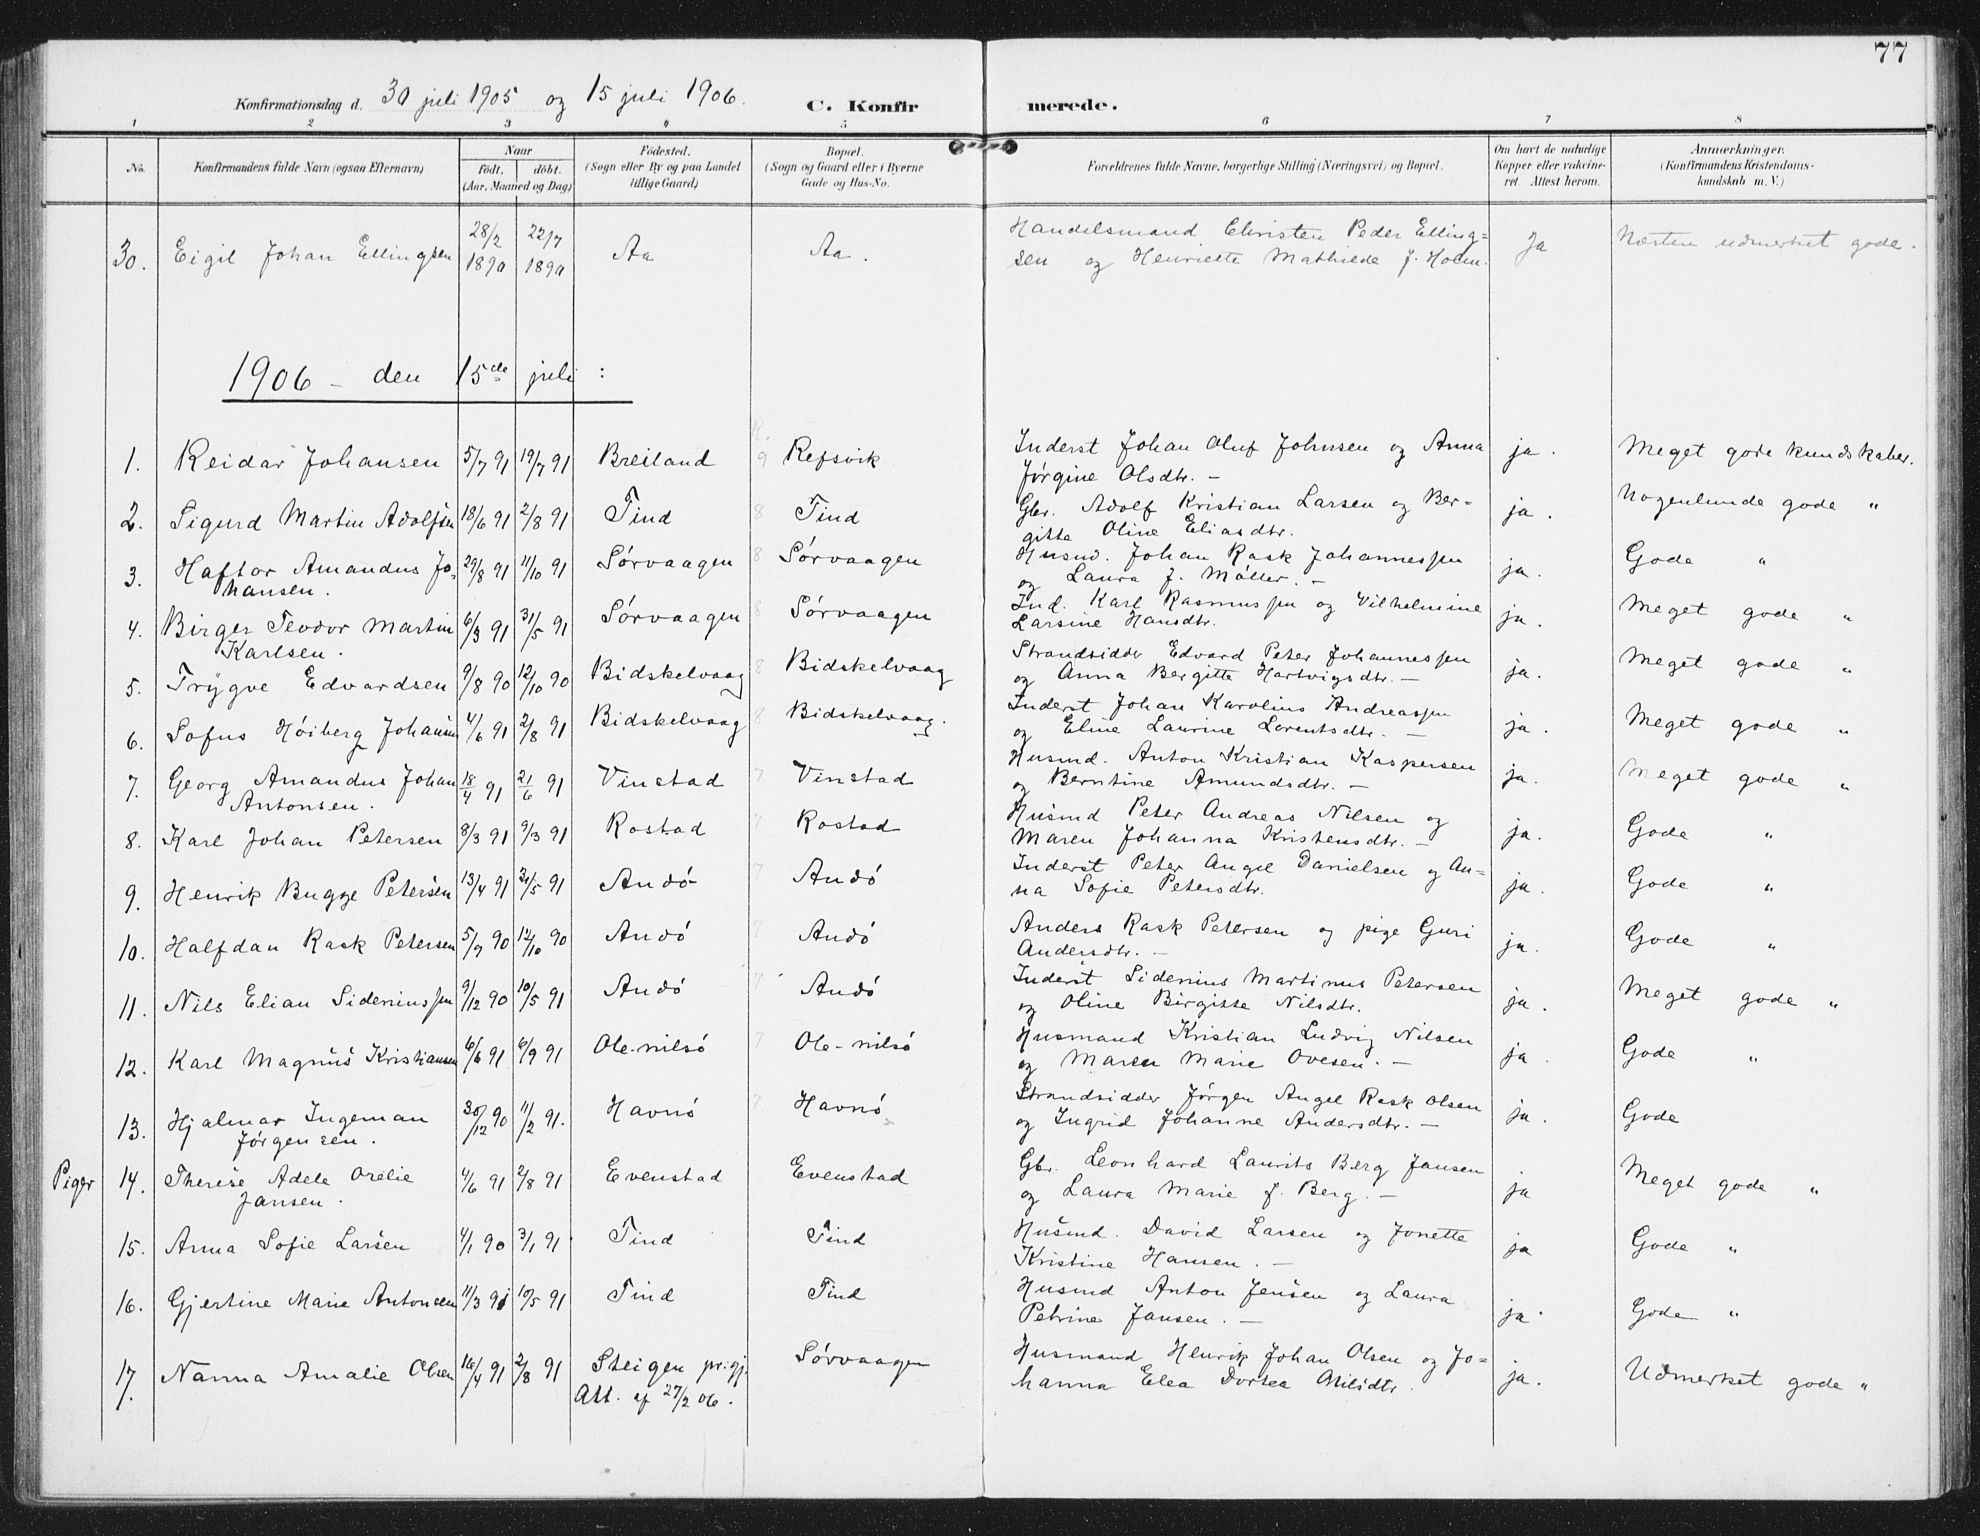 77
Konfirmationsdag d. 30 juli 1905 og 15 juli 1906. C. Konfirmerede.
1 2 3 4 5 6 7 8
No.
Konfirmandens fulde Navn (ogsaa Efternavn)
Naar
födt. döbt.
(Aar, Maaned og Dag)
Födested.
(Sogn eller By og paa Landet
tillige Gaard)
Bopæl.
(Sogn og Gaard eller i Byerne
Gade og Hus-No.
Forældrenes fulde Navne, borgerlige Stilling (Næringsvei) og Bopæl.
Om havt de naturlige
Kopper eller vakcine-
ret. Attest herom.
Anmærkninger.
(Konfirmandens Kristendoms-
kundskab m. V.)
30. Eigil Johan Ellingsen 28/2 1890 22/7 1890 Aa Aa. Handelsmand Christen Peder Elling=
sen og Henriette Mathilde f. Holm. Ja Næsten udmerket gode.
1906 - den 15de juli:
1. Reidar Johansen 5/7 91 19/7 91 Breiland R. 9 Refsvik Inderst Johan Oluf Johnsen og Anna
Jørgine Olsdtr. - ja. Meget gode kundskaber.
2. Sigurd Martin Adolfsen 18/6 91 2/8 91 Tind 8 Tind Gbr. Adolf Kristian Larsen og Ber-
gitte Oline Eliasdtr. ja. Nogenlunde gode "
3. Haftor Amandus Jo-
hansen. 29/8 91 11/10 91 Sørvaagen 8 Sørvaagen Husmd. Johan Rask Johannessen
og Laura f. Møller. - ja. Gode "
4. Birger Teodor Martin
Karlsen. 6/3 91 31/5 91 Sørvaagen 8 Sørvaagen Ind. Karl Rasmussen og Vilhelmine
Larsine Hansdtr. ja. Meget gode "
5. Trygve Edvardsen 9/8 90 12/10 90 Bidskelvaag 8 Bidskelvaag Strandsidder Edvard Peter Johannessen
og Anna Bergitte Hartvigsdtr. - ja. Meget gode "
6. Sofus Høiberg Johansen 4/6 91 2/8 91 Bidskelvaag 8 Bidskelvaag. Inderst Johan Karolius Andreassen
og Eline Laurine Lorentsdtr. - ja. Meget gode "
7. Georg Amandus Johan
Antonsen. 18/4 91 21/6 91 Vinstad 7 Vinstad Husmd. Anton Kristian Kaspersen
og Berntine Amundsdtr. - ja. Meget gode "
8. Karl Johan Petersen 8/3 91 9/3 91 Rostad 7 Rostad Husmd Peter Andreas Nilsen og
Maren Johanna Kristensdtr. - ja. Gode "
9. Henrik Bugge Petersen 13/4 91 31/5 91 Andö 7 Andö Inderst Peter Angel Danielsen og An-
na Sofie Petersdtr. ja. Gode "
10. Halfdan Rask Petersen 5/7 90 12/10 90 Andö 7 Andö Anders Rask Petersen og pige Guri
Andersdtr. - ja. Gode "
11. Nils Elian Sideniussen 9/12 90 10/5 91 Andö 7 Andö Inderst Sidenius Martinus Petersen
og Oline Birgitte Nilsdtr. ja. Meget gode "
12. Karl Magnus Kristiansen 6/6 91 6/9 91 Ole-nilsö 7 Ole-nilsö Husmand Kristian Ludvig Nilsen
og Maren Marie Ovesen. - ja. Gode "
13. Hjalmar Ingeman
Jørgensen. 30/12 90 11/2 91. Havnö 7 Havnö Strandsidder Jørgen Angel Rask Olsen
og Ingrid Johanne Andersdtr. - ja. Gode
Piger 14. Therese Adele Orelie
Jansen. 4/6 91 2/8 91 Evenstad Evenstad Gbr. Leonhard Laurits Berg Jansen
og Laura Marie f. Berg. - ja Meget gode "
15. Anna Sofie Larsen 4/1 90 3/1 91 Tind Tind Husmd. David Larsen og Jonette
Kristine Hansen. - ja Gode "
16. Gjertine Marie Antonsen 11/3 91 10/5 91 Tind Tind Husmd Anton Jensen og Laura
Petrine Jansen. - ja. Gode "
17. Nanna Amalie Olsen 16/4 91 2/8 91 Steigen pr. gj.
Att. af 27/2 06. Sørvaagen Husmand Henrik Johan Olsen og Jo-
hanna Elea Dortea Nilsdtr. ja. Udmerket gode "